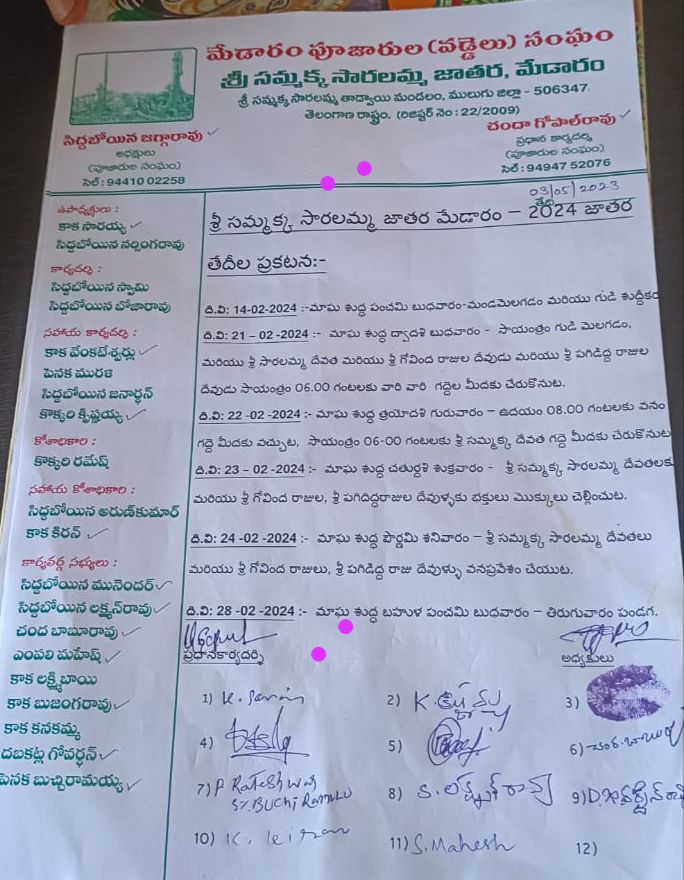 మేడారం పూజారుల (వడ్డెలు) సంఘం
శ్రీ సమ్మక్క సారలమ్మ జాతర, మేడారం
శ్రీ సమ్మక్క సారలమ్మ తాడ్వాయి మండలం, ములుగు జిల్లా - 506347.
తెలంగాణ రాష్ట్రం. (రిజిష్టర్ నెం : 22/2009)
సిద్దబోయిన జగ్గారావు
అధ్యక్షులు
(పూజారుల సంఘం)
సెల్ : 94410 02258
చందా గోపాల్‌రావు
ప్రధాన కార్యదర్శి
(పూజారుల సంఘం)
సెల్ : 94947 52076
03/05/2023
ఉపాధ్యక్షులు :
కాక సారయ్య
సిద్దబోయిన నర్సింగరావు
కార్యదర్శి :
సిద్దబోయిన స్వామి
సిద్దబోయిన బోజారావు
సహాయ కార్యదర్శి :
కాక వెంకటేశ్వర్లు
పెనక మురళి
సిద్దబోయిన జనార్థన్
కొక్కరి కృష్ణయ్య
కోశాధికారి :
కొక్కరి రమేష్
సహాయ కోశాధికారి :
సిద్దబోయిన అరుణ్‌కుమార్
కాక కిరన్
కార్యవర్గ సభ్యులు :
సిద్దబోయిన మునెందర్
సిద్దబోయిన లక్ష్మన్‌రావు
చంద బాబూరావు
ఎంపలి మహేష్
కాక లక్ష్మిబాయి
కాక బుజంగరావు
కాక కనకమ్మ
దబకట్ల గోవర్ధన్
పెనక బుచ్చిరామయ్య
శ్రీ సమ్మక్క సారలమ్మ జాతర మేడారం – 2024 జాతర
తేదీల ప్రకటన:-
ది.వి: 14-02-2024 :-మాఘ శుద్ధ పంచమి బుధవారం-మండమెలగడం మరియు గుడి శుద్ధీకర
ది.వి: 21 – 02 -2024 :- మాఘ శుద్ధ ద్వాదశి బుధవారం - సాయంత్రం గుడి మెలగడం,
మరియు శ్రీ సారలమ్మ దేవత మరియు శ్రీ గోవింద రాజుల దేవుడు మరియు శ్రీ పగిడిద్ద రాజుల
దేవుడు సాయంత్రం 06.00 గంటలకు వారి వారి గద్దెల మీదకు చేరుకొనుట.
ది.వి: 22 -02 -2024 :- మాఘ శుద్ధ త్రయోదశి గురువారం – ఉదయం 08.00 గంటలకు వనం
గద్దె మీదకు వచ్చుట, సాయంత్రం 06-00 గంటలకు శ్రీ సమ్మక్క దేవత గద్దె మీదకు చేరుకొనుట
ది.వి: 23 – 02 -2024 :- మాఘ శుద్ధ చతుర్దశి శుక్రవారం - శ్రీ సమ్మక్క సారలమ్మ దేవతలక
మరియు శ్రీ గోవింద రాజుల, శ్రీ పగిడిద్దరాజుల దేవుళ్ళకు భక్తులు మొక్కులు చెల్లించుట.
ది.వి: 24 -02 -2024 :- మాఘ శుద్ధ పౌర్ణమి శనివారం – శ్రీ సమ్మక్క సారలమ్మ దేవతలు
మరియు శ్రీ గోవింద రాజులు, శ్రీ పగిడిద్ద రాజు దేవుళ్ళు వనప్రవేశం చేయుట.
ది.వి: 28 -02 -2024 :- మాఘ శుద్ధ బహుళ పంచమి బుధవారం – తిరుగువారం పండగ.
ప్రధానకార్యదర్శి
అధ్యక్షులు
1)
2) K.
3)
4)
5)
6) చంద. బాబు
7) P Rajeshwar
S/o. BUCHI RAMULU
8) S. లక్ష్మన్ రావు
9) D. గోవర్ధన్
10) K. kiran
11) S. Mahesh
12)